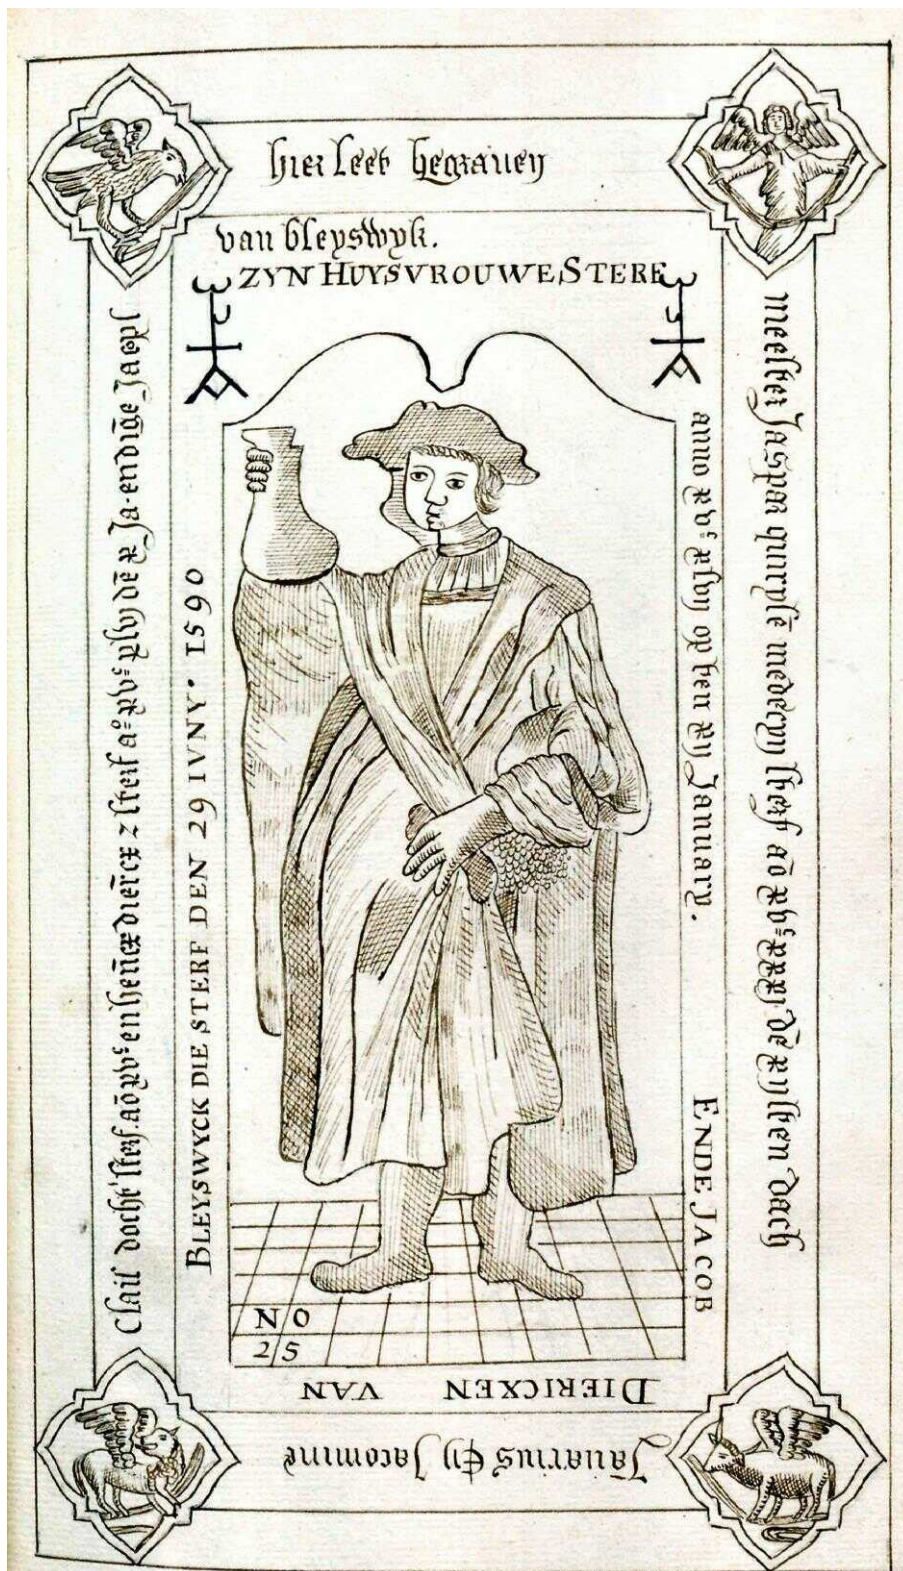 hier leet begrauen
meester Jaspar medecyn sterf aō xvᶜ xxxj dē xijsten dach
Januarius Eñ Jacomine
Clais docht' sterf aō xvᶜ en diercx z sterf aº xvᶜ dē Ja.
van bleyswyk.
ZYN HUYSVROUWE STERF
anno xvᶜ xlvij op ten xij January.
ENDE JACOB
DIERICXEN VAN
BLEYSWYCK DIE STERF DEN 29 IVNY · 1590
NO
25